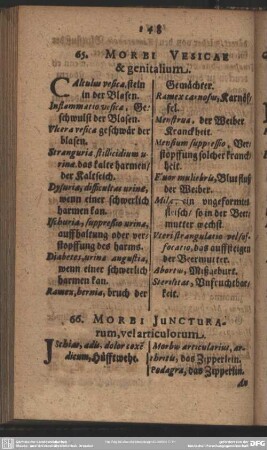 148
65. MORBI VESICAE
& genitalium.
CAlculus vesicæ, stein
in der Blasen.
Inflammatio vesicæ, Ge-
schwulst der Blasen.
Vlcera vesicæ geschwär der
blasen.
Stranguria stillicidium u-
rinæ. das kalte harmen/
der Kaltseich.
Dysuria, difficultas urinæ,
wenn einer schwerlich
harmen kan.
Ischuria, suppressio urinæ,
auffhaltung oder ver-
stopffung des harms.
Diabetes, urinæ angustia,
wenn einer schwerlich
harmen kan.
Ramex, hernia, bruch der
Gemächter.
Ramex carnosus, Karnöf-
fel.
Menstrua, der Weiber
Kranckheit.
Mensium suppressio, Ver-
stopffung solcher kranck-
heit.
Fluor muliebris, Blutfluß
der Weiber.
Mola, ein ungeformt
fleisch/ so in der Beer-
mutter wechst.
Vteri strangulatio vel suf-
focatio, das auffsteigen
der Beermutter.
Abortus, Mißgeburt.
Sterilitas, Unfruchtbar-
keit.
66. MORBI JUNCTURA-
rum, vel articulorum.
JSchias, adis. dolor coxe-
dicum, Hüfftwehe.
Morbus articularius, ar-
thritis, das Zipperlein.
Podagra, das Zipperlin